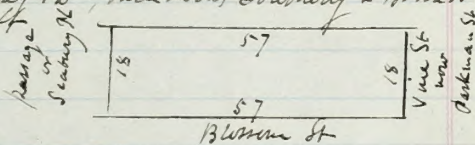 57
passage
or
Seabury Pl
18
18
Vine St
now
Parkman St
57
Blossom St